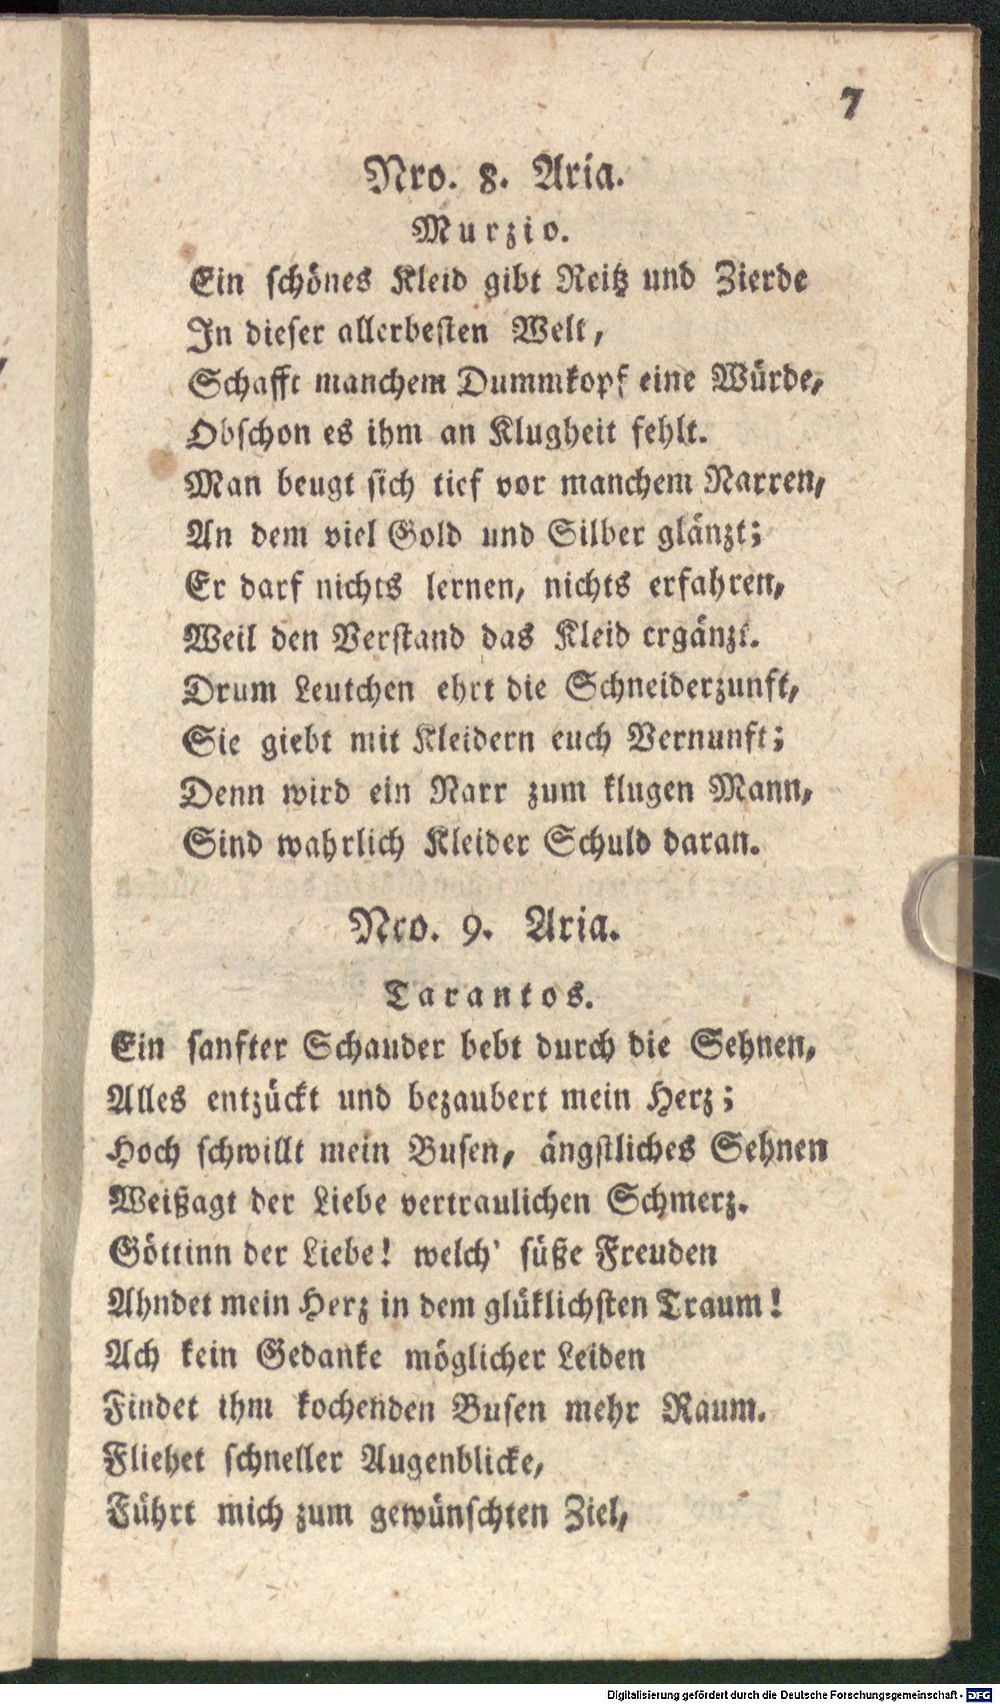 7
Nro. 8. Aria.
Murzio.
Ein schönes Kleid gibt Reitz und Zierde
In dieser allerbesten Welt,
Schafft manchem Dummkopf eine Würde,
Obschon es ihm an Klugheit fehlt.
Man beugt sich tief vor manchem Narren,
An dem viel Gold und Silber glänzt;
Er darf nichts lernen, nichts erfahren,
Weil den Verstand das Kleid ergänzt.
Drum Leutchen ehrt die Schneiderzunft,
Sie giebt mit Kleidern euch Vernunft;
Denn wird ein Narr zum klugen Mann,
Sind wahrlich Kleider Schuld daran.
Nro. 9. Aria.
Tarantos.
Ein sanfter Schauder bebt durch die Sehnen,
Alles entzückt und bezaubert mein Herz;
Hoch schwillt mein Busen, ängstliches Sehnen
Weißagt der Liebe vertraulichen Schmerz.
Göttinn der Liebe! welch' süße Freuden
Ahndet mein Herz in dem glüklichsten Traum!
Ach kein Gedanke möglicher Leiden
Findet ihm kochenden Busen mehr Raum.
Fliehet schneller Augenblicke,
Führt mich zum gewünschten Ziel,
Digitalisierung gefördert durch die Deutsche Forschungsgemeinschaft - DFG